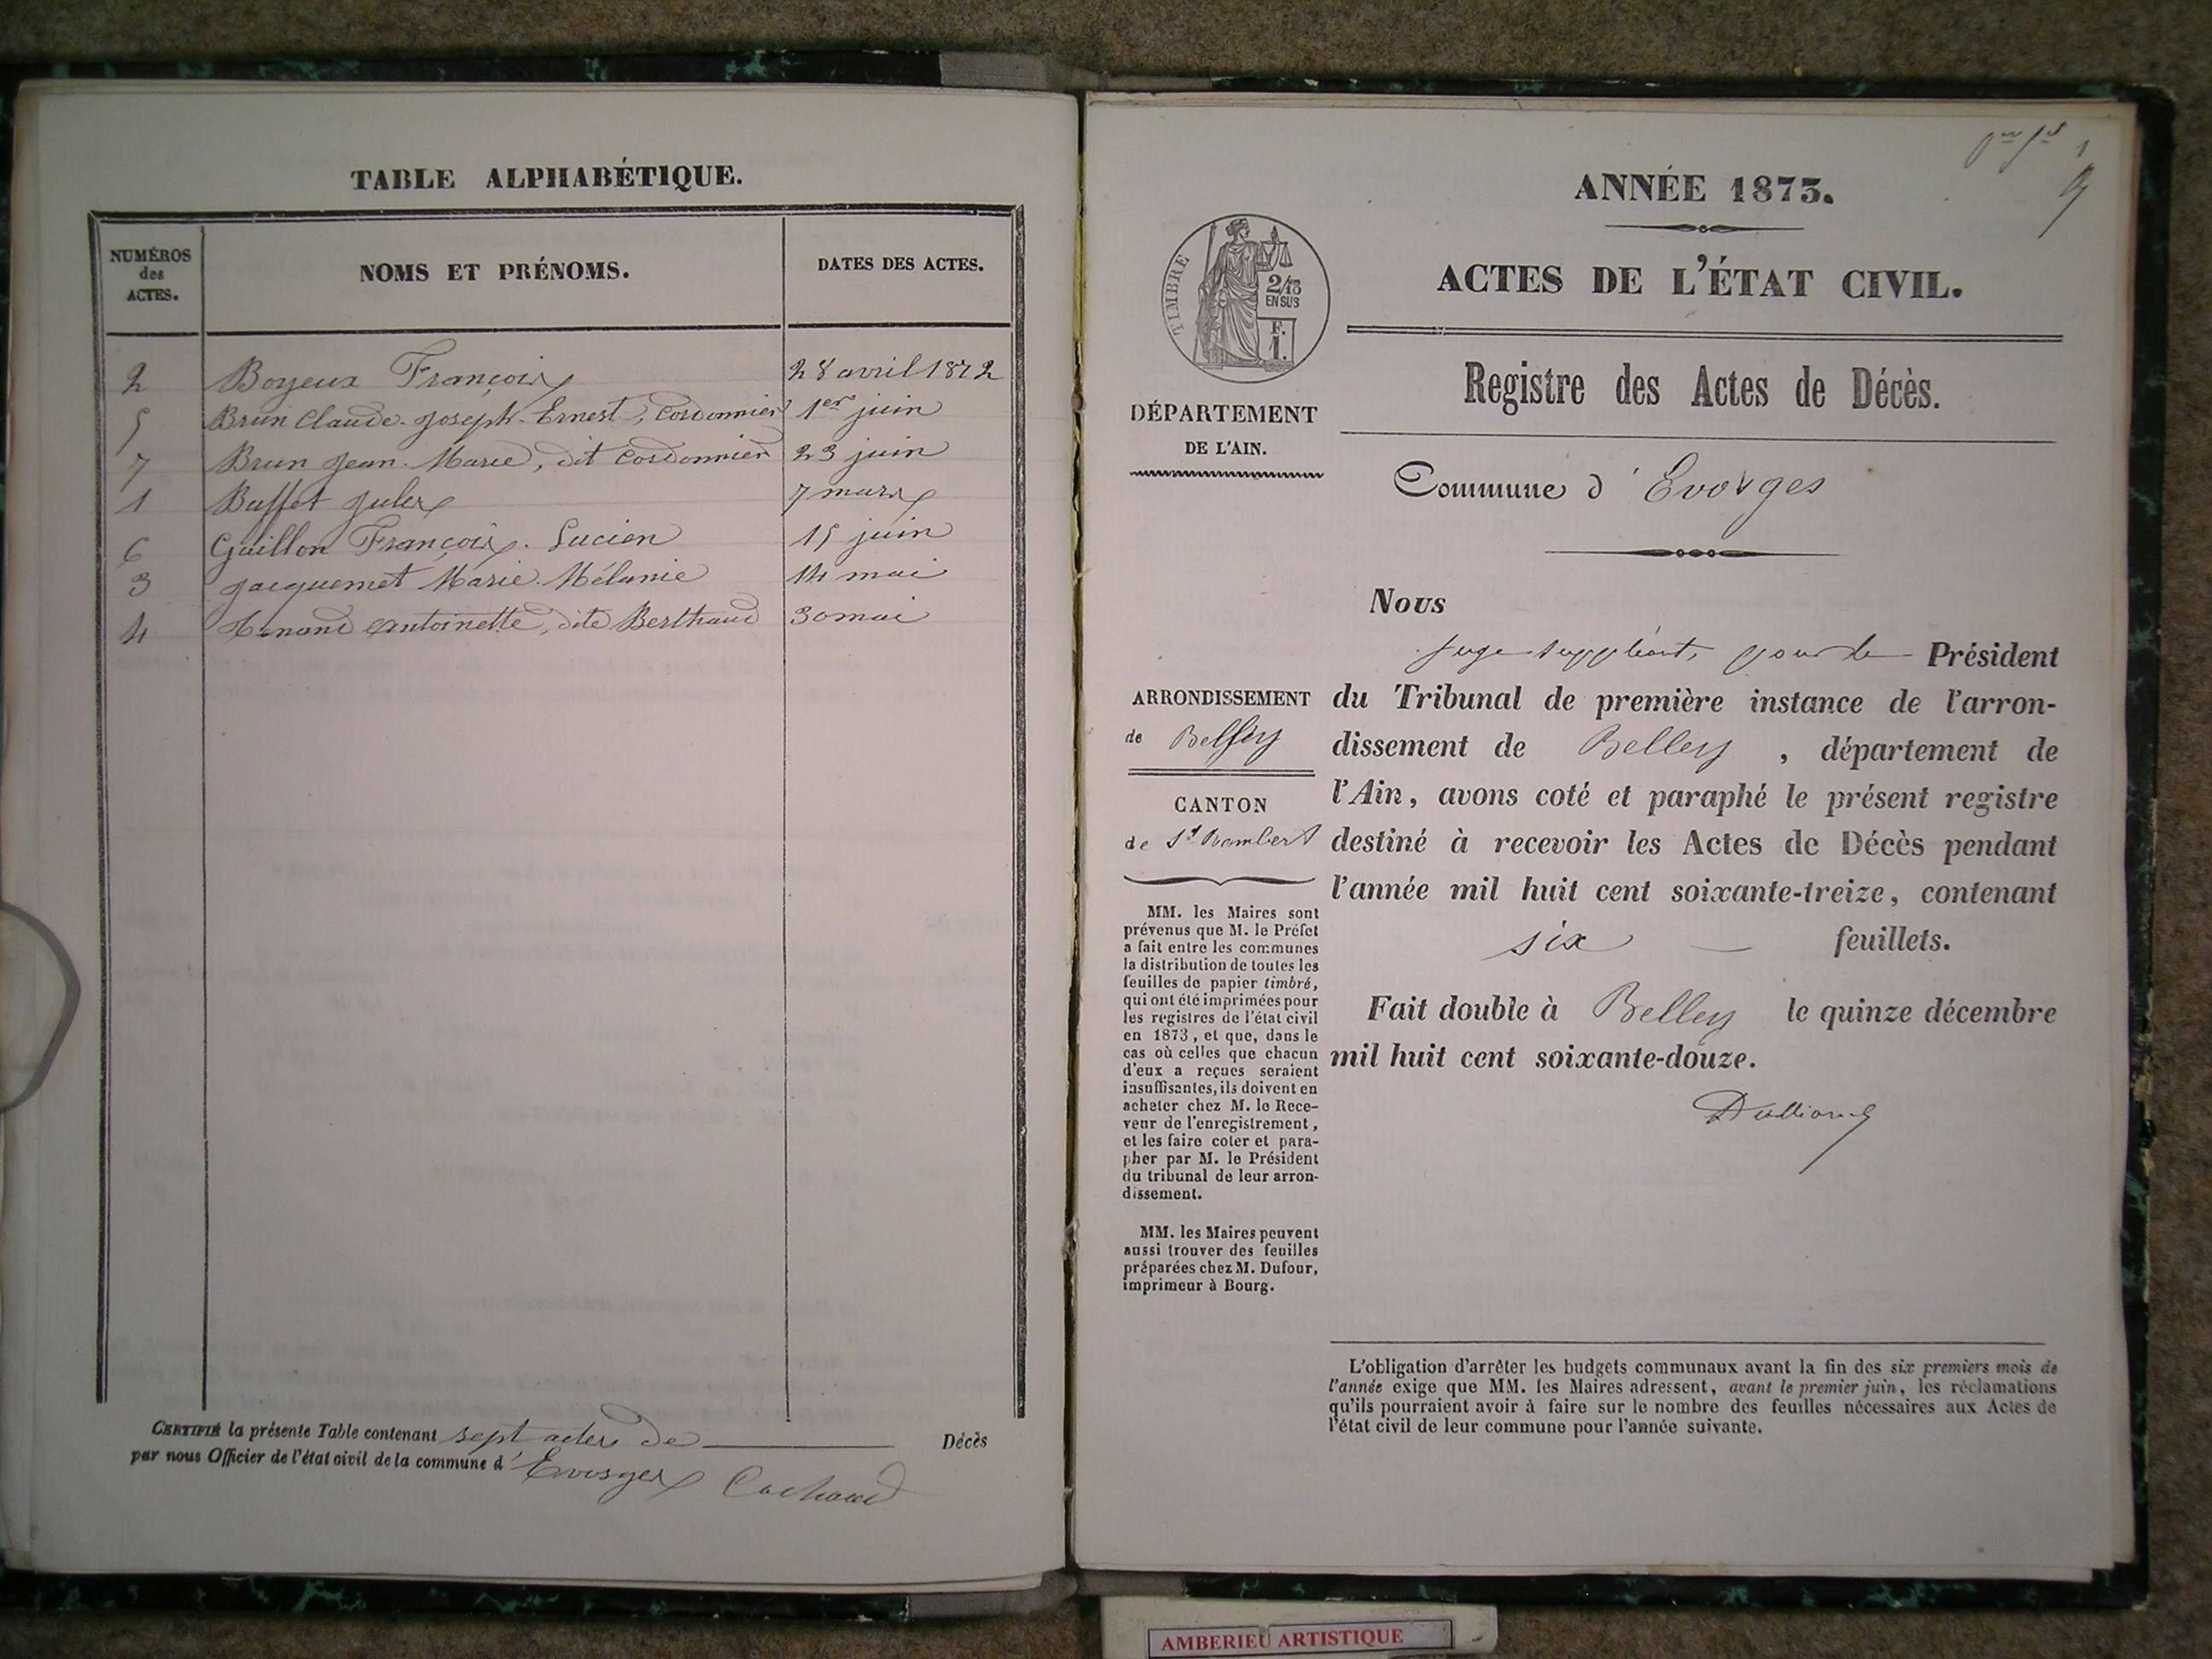 TABLE ALPHABÉTIQUE.
NUMÉROS
des
ACTES.
NOMS ET PRÉNOMS.
DATES DES ACTES.
2 Boyeux François 28 avril 1872
5 Brun Claude-Joseph-Ernest, Cordonnier 1er juin
7 Brun Jean-Marie, dit Cordonnier 23 juin
1 Buffet Jules 7 mars
6 Guillon François-Lucien 15 juin
3 Jacquemet Marie-Mélanie 14 mai
4 Antoinette, dite Berthaud 30 mai
CERTIFIÉ la présente Table contenant sept actes de Décès
par nous Officier de l'état civil de la commune d'Evosges
1
ANNÉE 1873.
ACTES DE L'ÉTAT CIVIL.
TIMBRE
2/10
EN SUS
F.
1.
Registre des Actes de Décès.
DÉPARTEMENT
DE L'AIN.
Commune d'Evosges
Nous
juge suppléant, pour le Président
du Tribunal de première instance de l'arron-
dissement de Belley, département de
l'Ain, avons coté et paraphé le présent registre
destiné à recevoir les Actes de Décès pendant
l'année mil huit cent soixante-treize, contenant
six feuillets.
Fait double à Belley le quinze décembre
mil huit cent soixante-douze.
ARRONDISSEMENT
de Belley
CANTON
de St Rambert
MM. les Maires sont
prévenus que M. le Préfet
a fait entre les communes
la distribution de toutes les
feuilles de papier timbré,
qui ont été imprimées pour
les registres de l'état civil
en 1873, et que, dans le
cas où celles que chacun
d'eux a reçues seraient
insuffisantes, ils doivent en
acheter chez M. le Rece-
veur de l'enregistrement,
et les faire coter et para-
pher par M. le Président
du tribunal de leur arron-
dissement.
MM. les Maires peuvent
aussi trouver des feuilles
préparées chez M. Dufour,
imprimeur à Bourg.
L'obligation d'arrêter les budgets communaux avant la fin des six premiers mois de
l'année exige que MM. les Maires adressent, avant le premier juin, les réclamations
qu'ils pourraient avoir à faire sur le nombre des feuilles nécessaires aux Actes de
l'état civil de leur commune pour l'année suivante.
AMBERIEU ARTISTIQUE